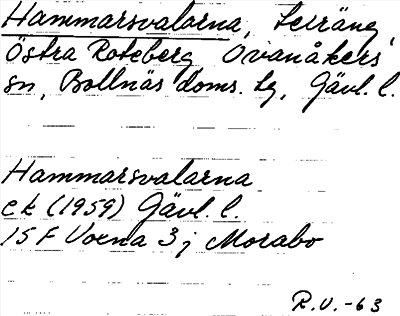 Hammarsvalarna, Terräng,
Östra Roteberg Ovanåkers
sn, Bollnäs doms. tg, Gävl. l.
Hammarsvalarna
ek (1959) Gävl. l.
15 F Voxna 3 j Morabo
R.V.-63